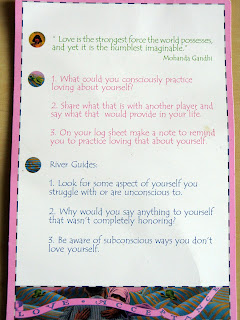 " Love is the strongest force the world possesses,
and yet it is the humblest imaginable."
Mohanda Gandhi
1. What could you consciously practice
loving about yourself?
2. Share what that is with another player and
say what that would provide in your life.
3. On your log sheet make a note to remind
you to practice loving that about yourself.
River Guides:
1. Look for some aspect of yourself you
struggle with or are unconscious to.
2. Why would you say anything to yourself
that wasn't completely honoring?
3. Be aware of subconscious ways you don't
love yourself.